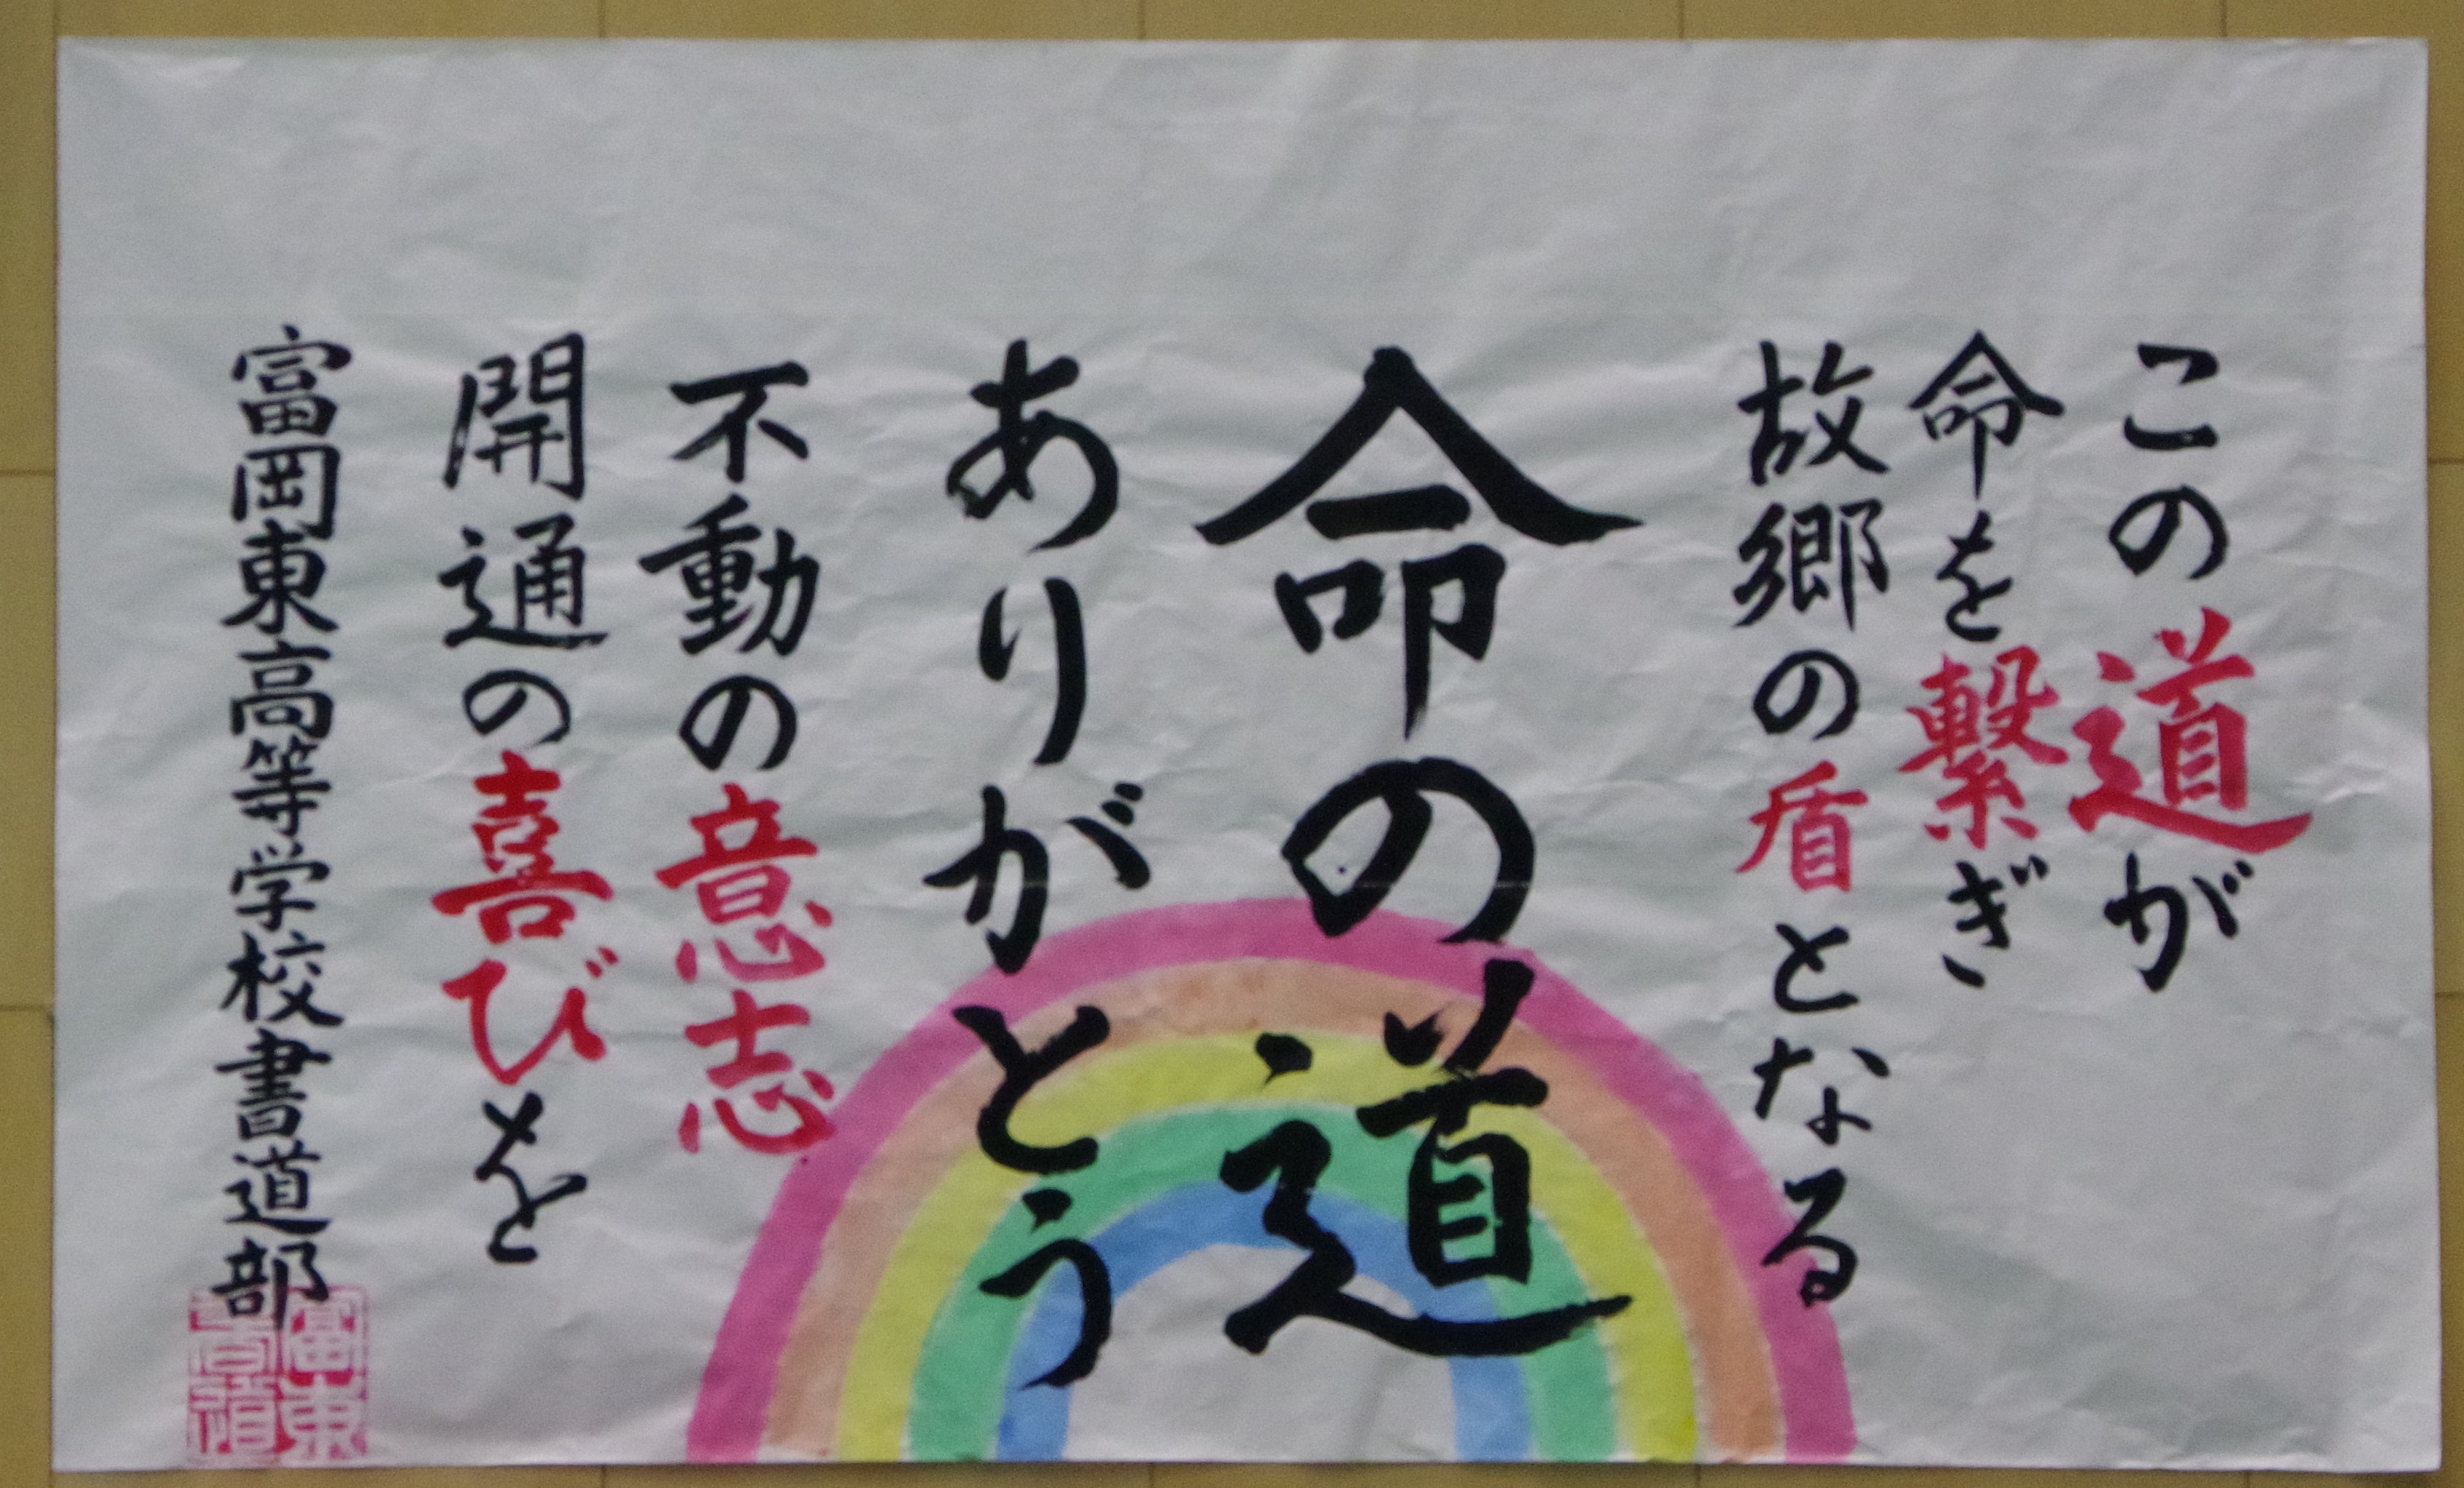 この道が
命を繋ぎ
故郷の盾となる
命の道
ありがとう
不動の意志
開通の喜びを
富岡東高等学校書道部
富東
書道